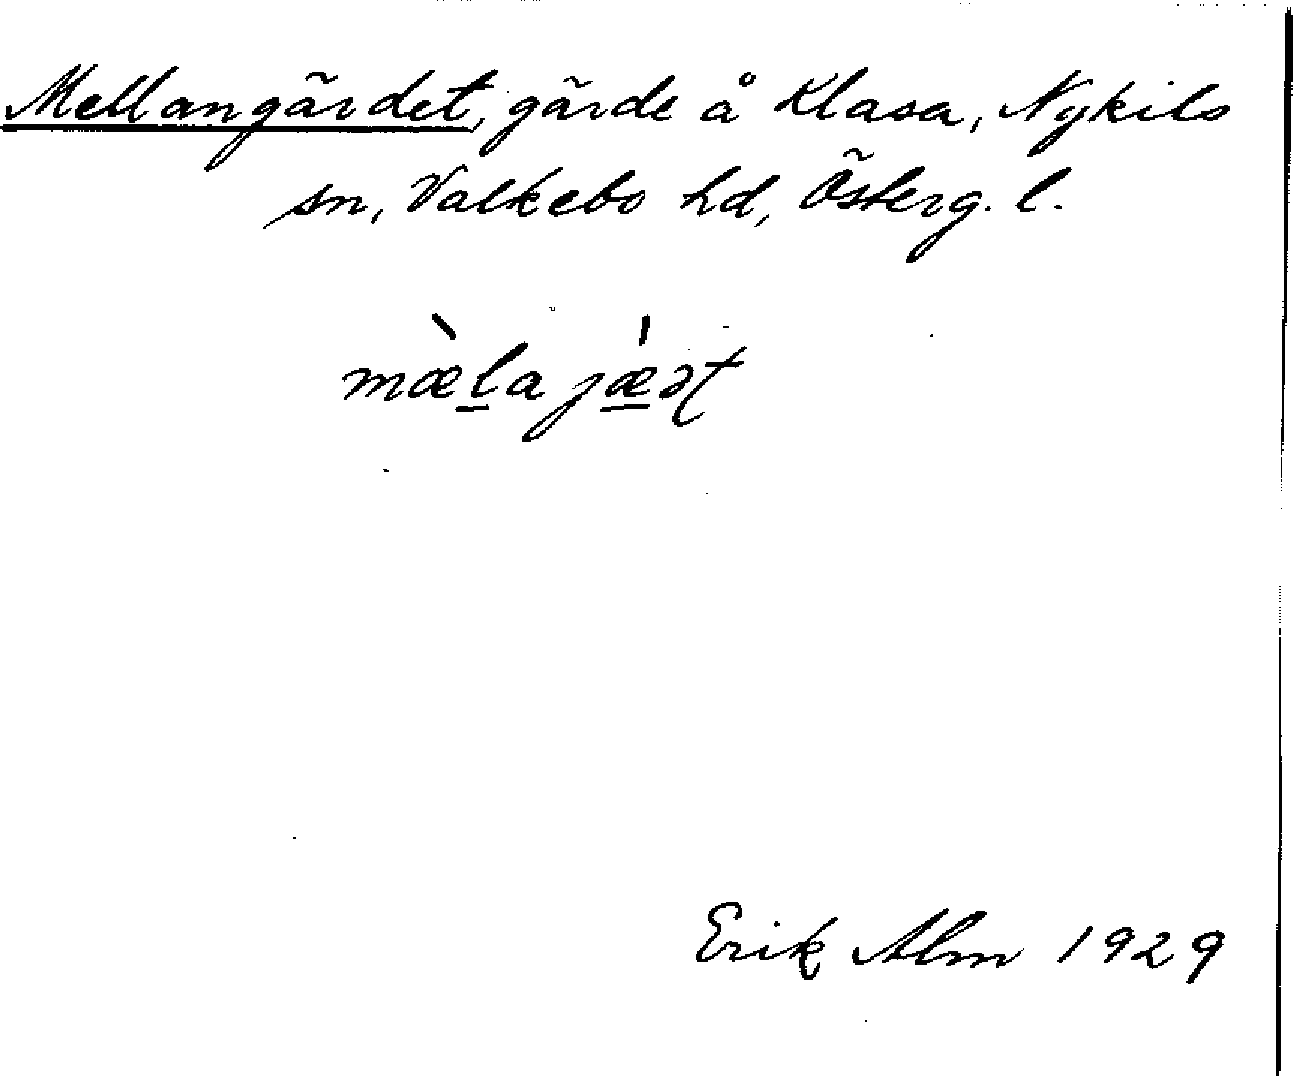 Mellangärdet, gärde å Klasa, Nykils
sn, Valkebo hd, Österg. l.
mæ̀l̲a jǽ̲ət
Erik Alm 1929